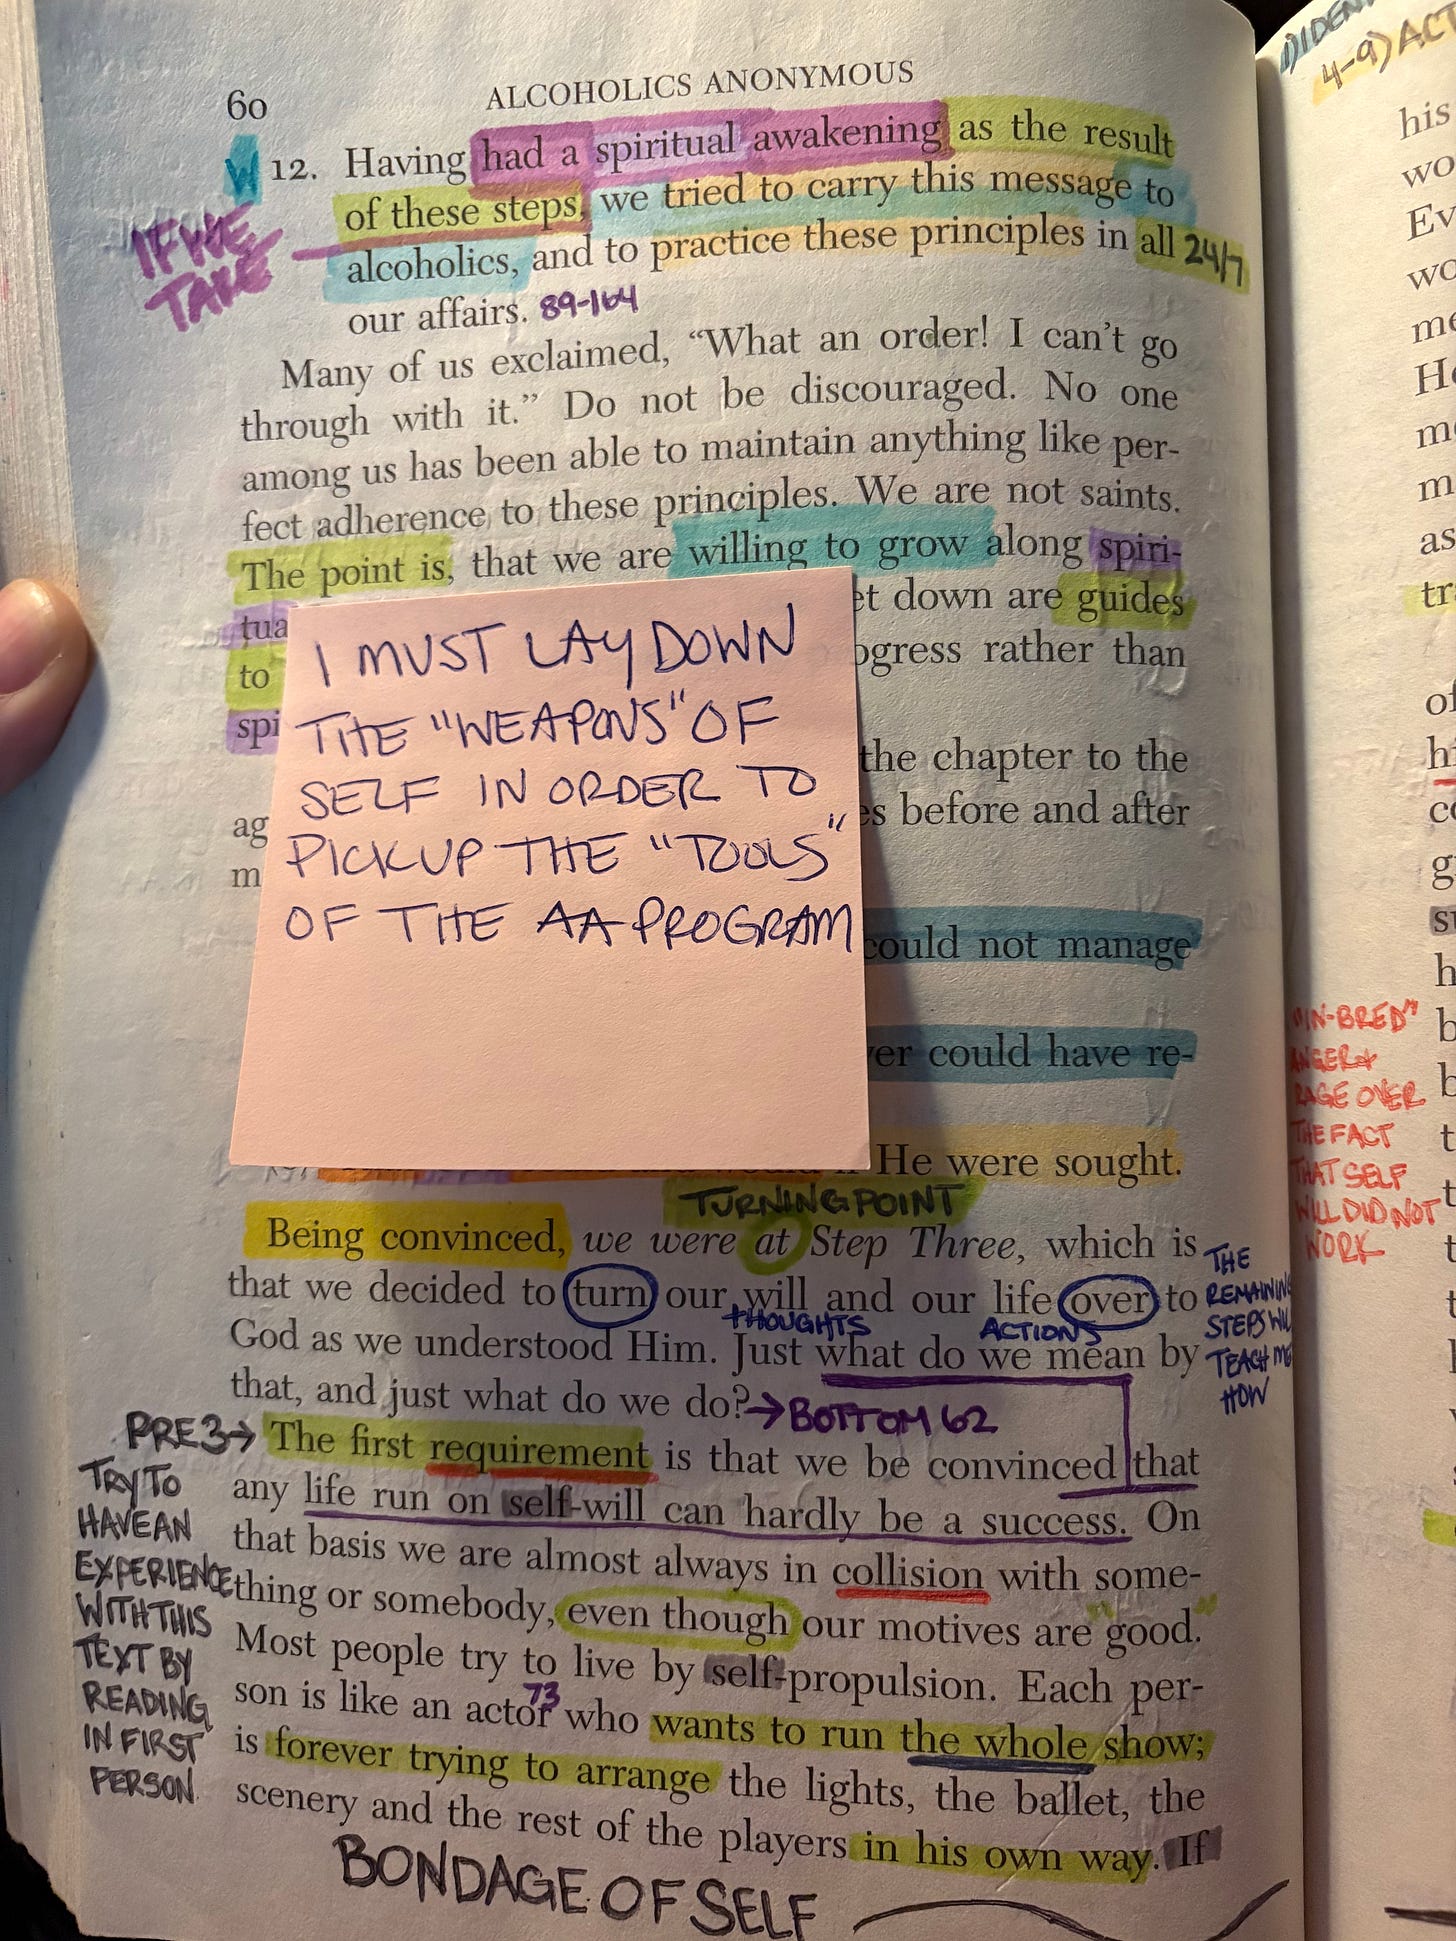 60
ALCOHOLICS ANONYMOUS
W
12. Having had a spiritual awakening as the result
of these steps, we tried to carry this message to
alcoholics, and to practice these principles in all 24/7
our affairs. 89-164
IF WE
TAKE
Many of us exclaimed, “What an order! I can’t go
through with it.” Do not be discouraged. No one
among us has been able to maintain anything like per-
fect adherence to these principles. We are not saints.
The point is, that we are willing to grow along spiri-
tua
et down are guides
to
ogress rather than
spi
the chapter to the
ag
es before and after
m
could not manage
er could have re-
He were sought.
I MUST LAY DOWN
THE "WEAPONS" OF
SELF IN ORDER TO
PICK UP THE "TOOLS"
OF THE AA PROGRAM
TURNING POINT
Being convinced, we were at Step Three, which is
that we decided to turn our will and our life over to
THOUGHTS
ACTIONS
God as we understood Him. Just what do we mean by
that, and just what do we do? → BOTTOM 62
THE
REMAINING
STEPS WILL
TEACH ME
HOW
PRE 3 →
The first requirement is that we be convinced that
any life run on self-will can hardly be a success. On
that basis we are almost always in collision with some-
thing or somebody, even though our motives are "good."
Most people try to live by self-propulsion. Each per-
73
son is like an actor who wants to run the whole show;
is forever trying to arrange the lights, the ballet, the
scenery and the rest of the players in his own way. If
TRY TO
HAVE AN
EXPERIENCE
WITH THIS
TEXT BY
READING
IN FIRST
PERSON
BONDAGE OF SELF
4-9) ACT
his
wo
Ev
wo
me
He
m
as
tr
of
"IN-BRED"
ANGER +
RAGE OVER
THE FACT
THAT SELF
WILL DID NOT
WORK